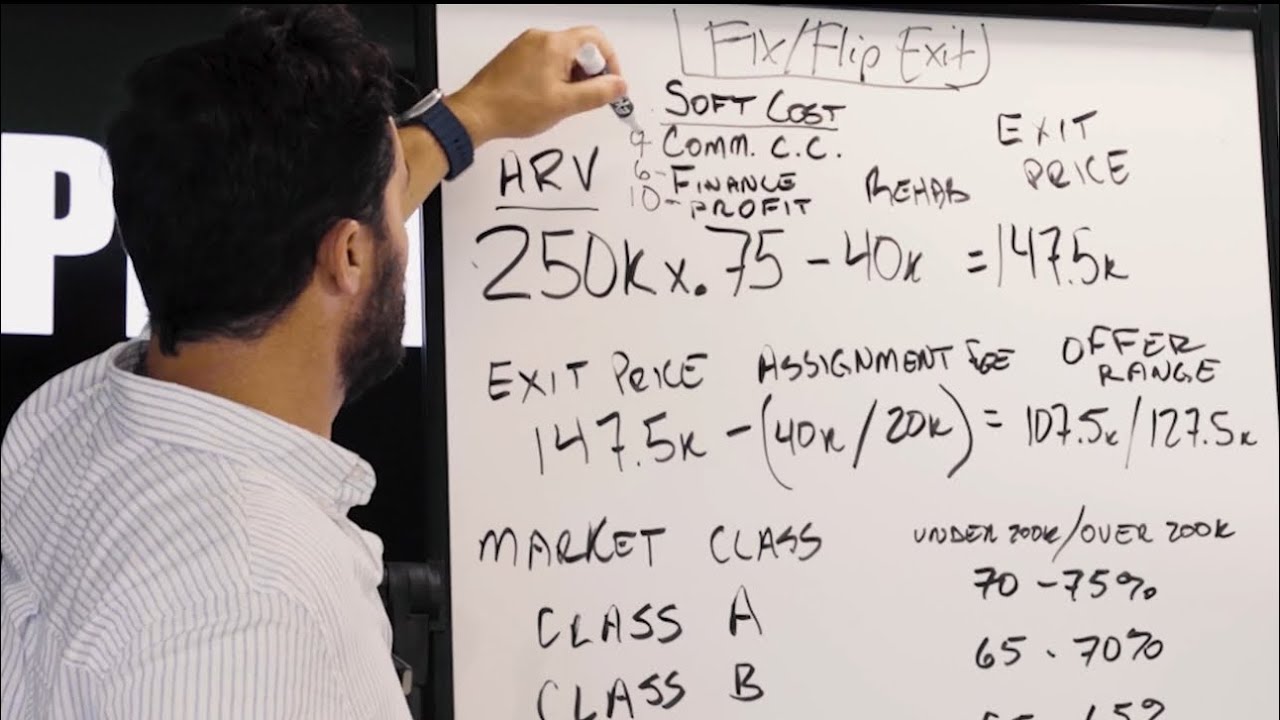 Fix/Flip Exit
SOFT COST
9 COMM. C.C.
6 - FINANCE
10 - PROFIT
ARV
REHAB
EXIT
PRICE
250K x .75 - 40K = 147.5K
EXIT PRICE ASSIGNMENT FEE OFFER
RANGE
147.5K - (40K / 20K) = 107.5K / 127.5K
MARKET CLASS UNDER 200K / OVER 200K
CLASS A 70 - 75%
CLASS B 65 - 70%
P